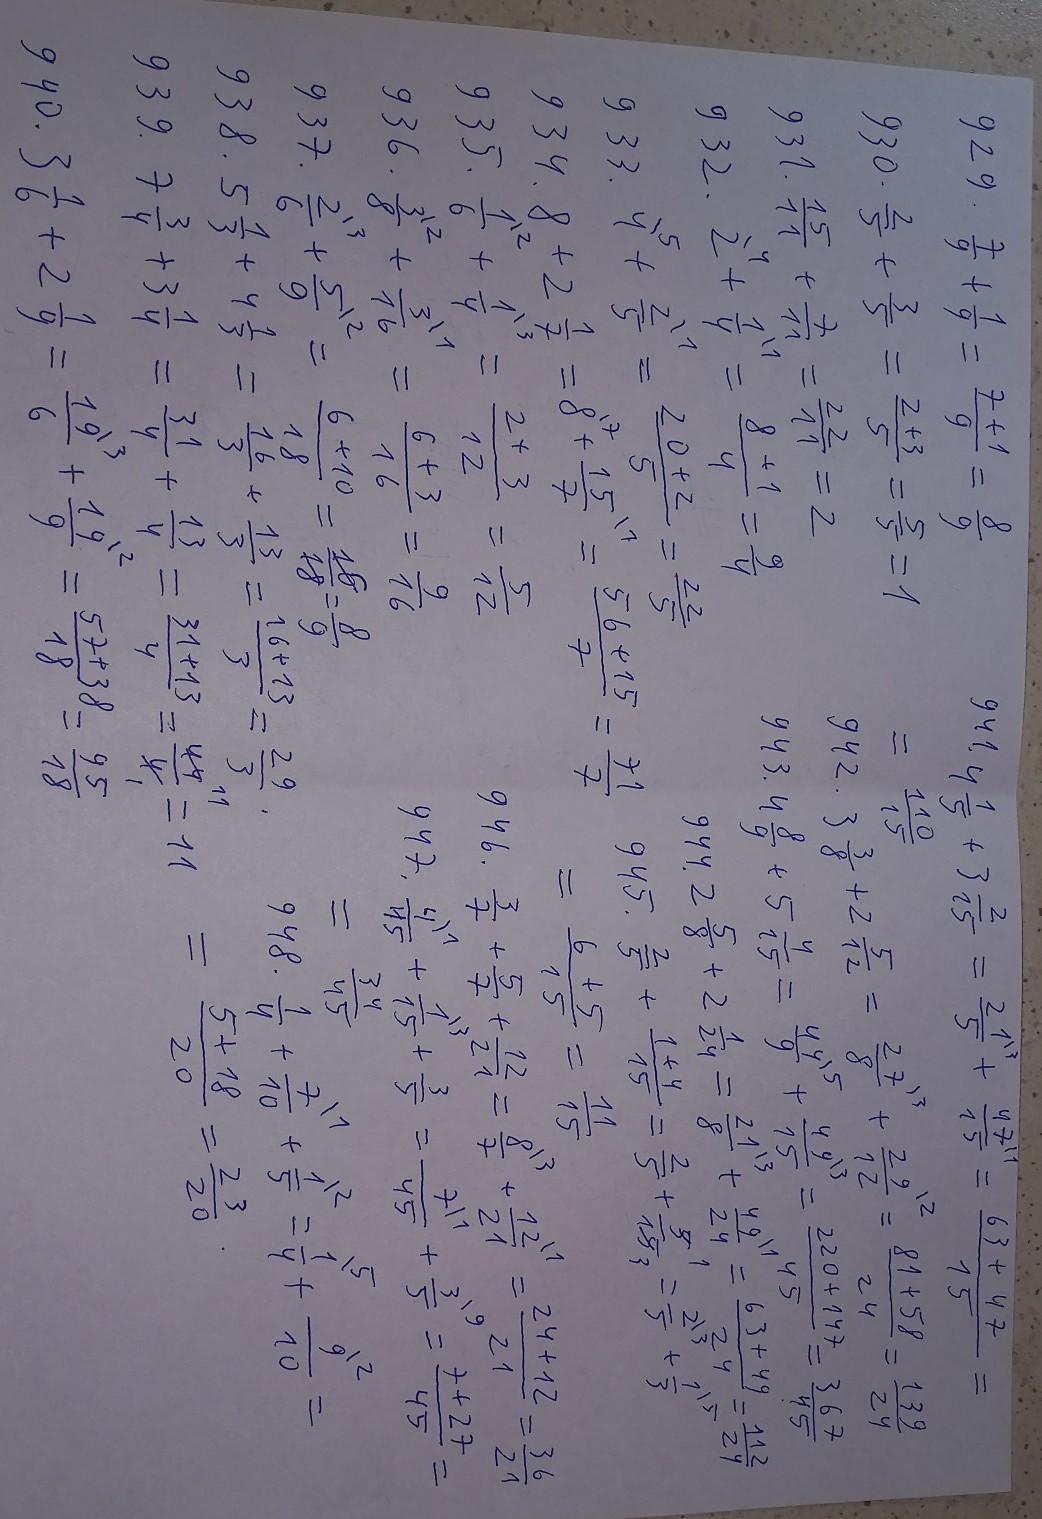 929. 7/9 + 1/9 = 7+1/9 = 8/9
930. 2/5 + 3/5 = 2+3/5 = 5/5 = 1
931. 15/11 + 7/11 = 22/11 = 2
932. 2\4 + 1/4\1 = 8+1/4 = 9/4
933. 4\5 + 2/5\1 = 20+2/5 = 22/5
934. 8 + 2 1/7 = 8\7 + 15/7\1 = 56+15/7 = 71/7
935. 1/6\2 + 1/4\3 = 2+3/12 = 5/12
936. 3/8\2 + 3/16\1 = 6+3/16 = 9/16
937. 2/6\3 + 5/9\2 = 6+10/18 = 16/18 = 8/9
938. 5 1/3 + 4 1/3 = 16/3 + 13/3 = 16+13/3 = 29/3.
939. 7 3/4 + 3 1/4 = 31/4 + 13/4 = 31+13/4 = 44 11/4 1 = 11
940. 3 1/6 + 2 1/9 = 19/6\3 + 19/9\2 = 57+38/18 = 95/18
941. 4 1/5 + 3 2/15 = 21/5\3 + 47/15\1 = 63+47/15 =
= 110/15
942. 3 3/8 + 2 5/12 = 27/8\3 + 29/12\2 = 81+58/24 = 139/24
943. 4 8/9 + 5 4/15 = 44/9\5 + 49/15\3 = 220+147/45 = 367/45
944. 2 5/8 + 2 1/24 = 21/8\3 + 49/24\1 = 63+49/24 = 112/24
945. 2/5 + 1+4/15 = 2/5 + 5 1/15 3 = 2/5\3 + 1/3\5
= 6+5/15 = 11/15
946. 3/7 + 5/7 + 12/21 = 8/7\3 + 12/21\1 = 24+12/21 = 36/21
947. 4/45\1 + 1/15\3 + 3/5 = 7/45\1 + 3/5\9 = 7+27/45 =
= 34/45
948. 1/4 + 7/10\1 + 1/5\2 = 1/4\5 + 9/10\2 =
= 5+18/20 = 23/20.